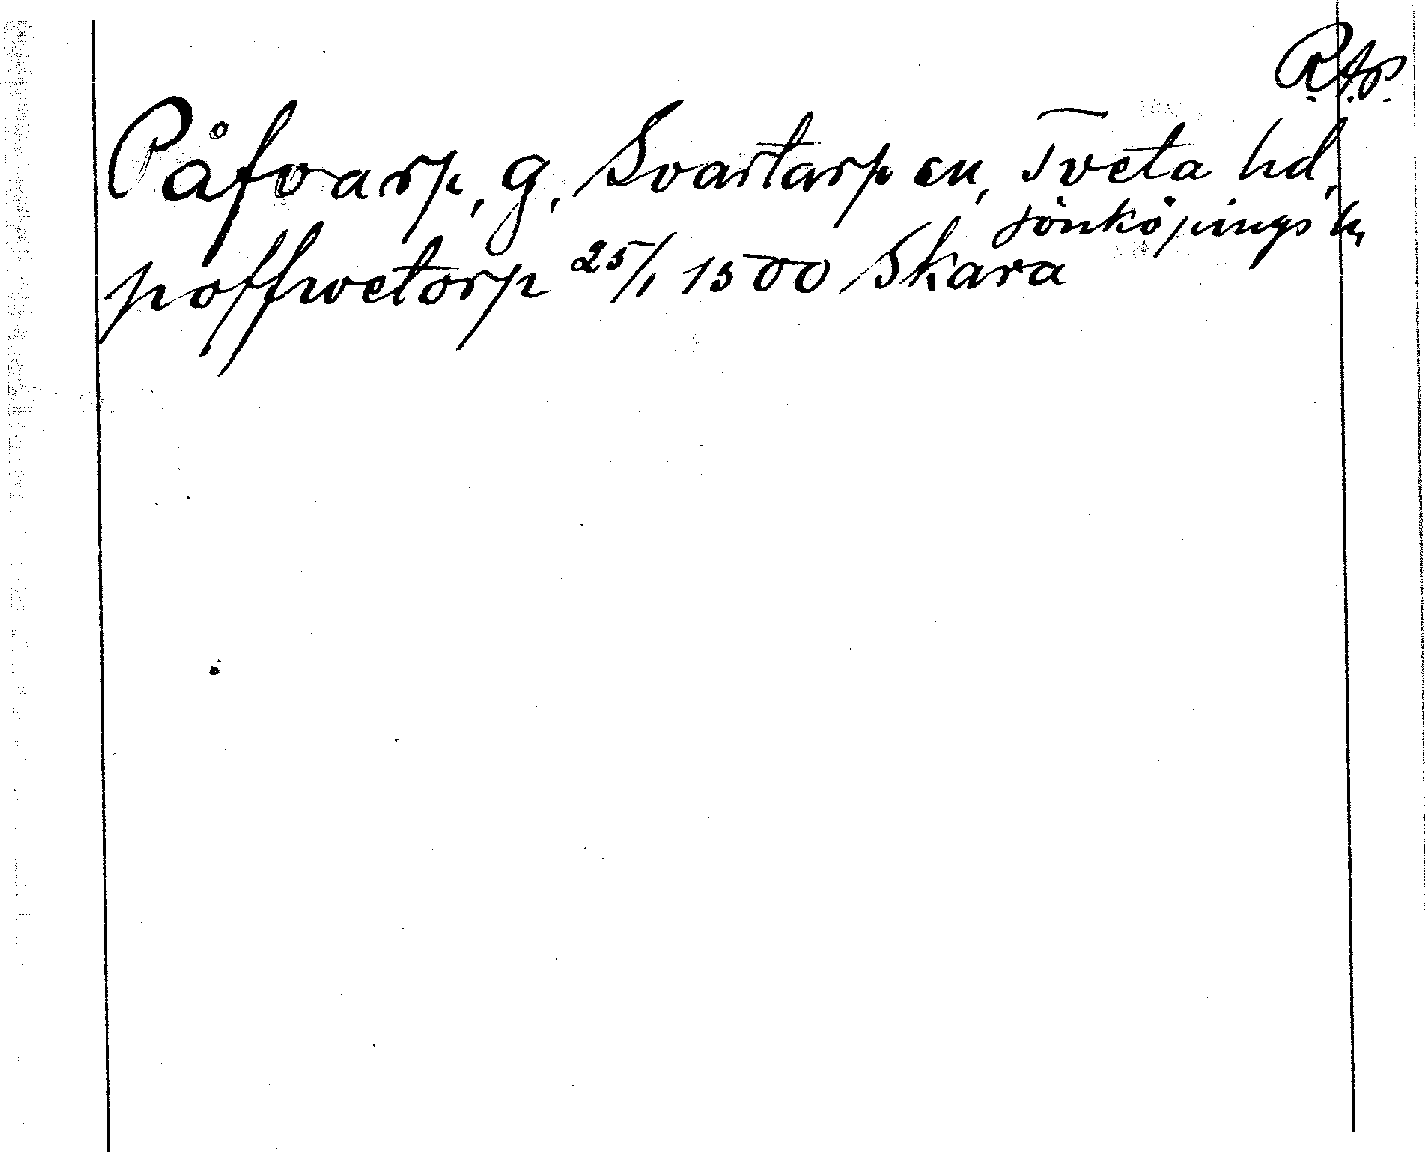 R.A.P.
Påfvarp, g, Svartarp sn, Tveta hd,
Jönköpings l,
poffwetorp 25/1 1500 Skara